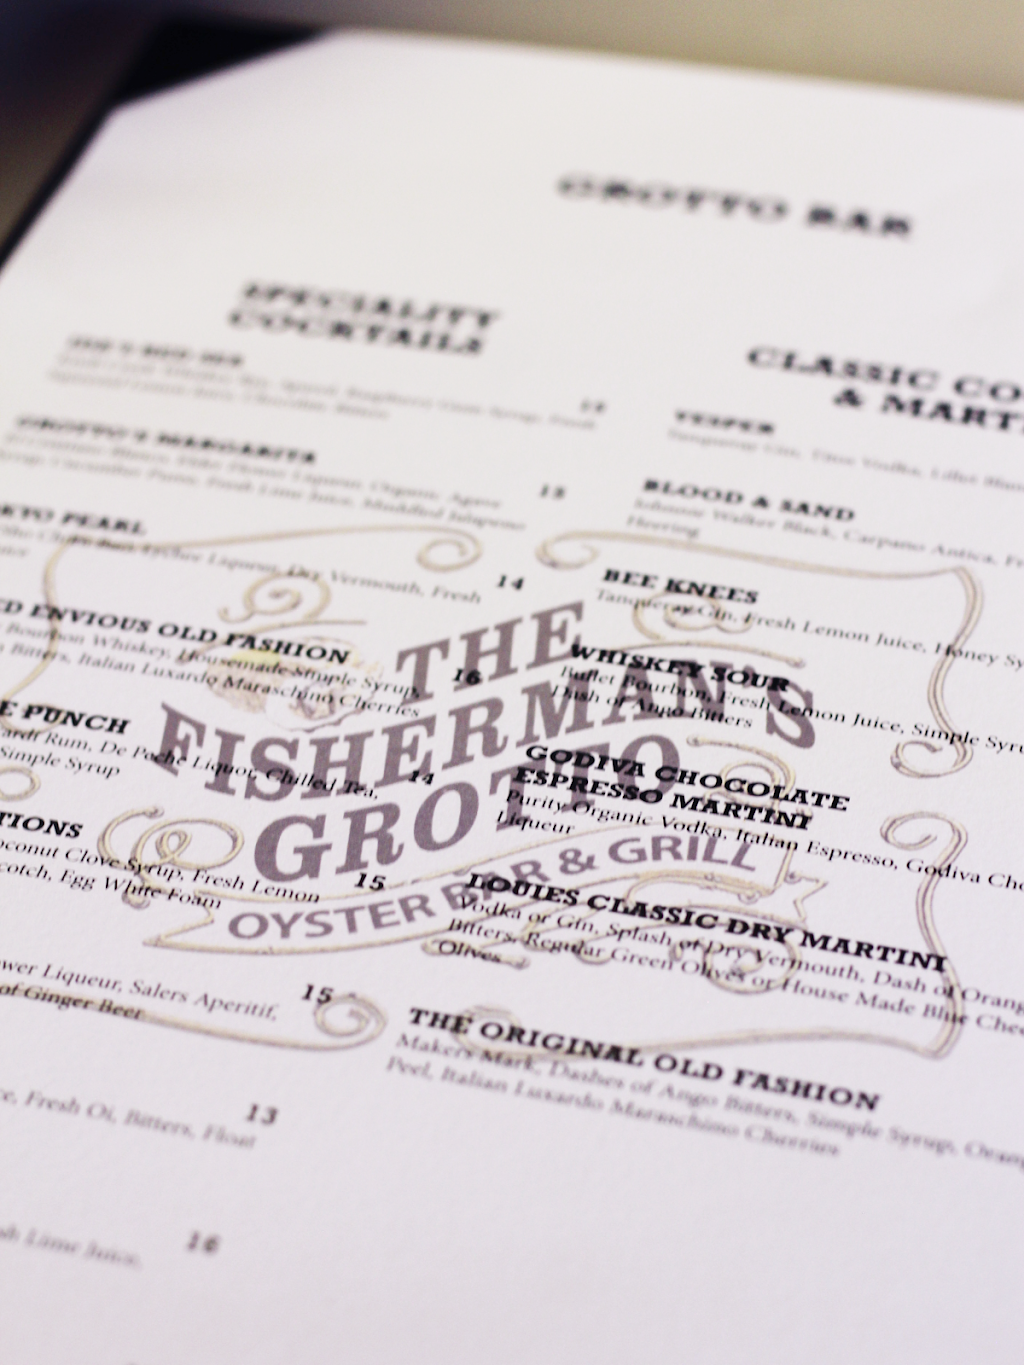 GROTTO BAR
SPECIALITY
COCKTAILS
13
GROTTO'S MARGARITA
Fresh Lime Juice, Muddled Jalapeno
13
PEARL
Lychee Liqueur, Dry Vermouth, Fresh
14
ENVIOUS OLD FASHION
Bourbon Whiskey, Housemade Simple Syrup,
Bitters, Italian Luxardo Maraschino Cherries
16
PUNCH
Rum, De Peche Liquor, Chilled Tea,
Simple Syrup
14
TIONS
Coconut Clove Syrup, Fresh Lemon
Scotch, Egg White Foam
15
Liqueur, Salers Aperitif,
of Ginger Beer
15
Fresh Oi, Bitters, Float
13
Lime Juice,
16
CLASSIC CO
& MARTI
VESPER
Tanqueray Gin, Titos Vodka, Lillet
BLOOD & SAND
Johnnie Walker Black, Carpano Antica,
Heering
BEE KNEES
Tanqueray Gin, Fresh Lemon Juice, Honey Sy
WHISKEY SOUR
Bullet Bourbon, Fresh Lemon Juice, Simple Syru
Dash of Ango Bitters
GODIVA CHOCOLATE
ESPRESSO MARTINI
Purity Organic Vodka, Italian Espresso, Godiva Cho
Liqueur
LOUIES CLASSIC DRY MARTINI
Vodka or Gin, Splash of Dry Vermouth, Dash of Orang
Bitters, Regular Green Olives or House Made Blue Chee
Olives
THE ORIGINAL OLD FASHION
Makers Mark, Dashes of Ango Bitters, Simple Syrup, Orang
Peel, Italian Luxardo Maraschino Cherries
THE
FISHERMAN'S
GROTTO
OYSTER BAR & GRILL